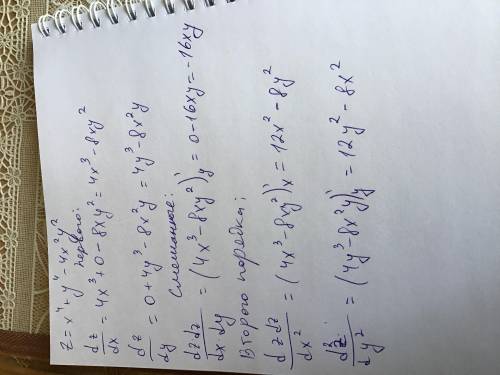 z = x⁴ + y⁴ - 4x²y²
первого:
dz/dx = 4x³ + 0 - 8xy² = 4x³ - 8xy²
dz/dy = 0 + 4y³ - 8x²y = 4y³ - 8x²y
Смешанные:
dzdz/dx·dy = (4x³ - 8xy²)'y = 0 - 16xy = -16xy
Второго порядка:
dzdz/dx² = (4x³ - 8xy²)'x = 12x² - 8y²
d²z/dy² = (4y³ - 8x²y)'y = 12y² - 8x²